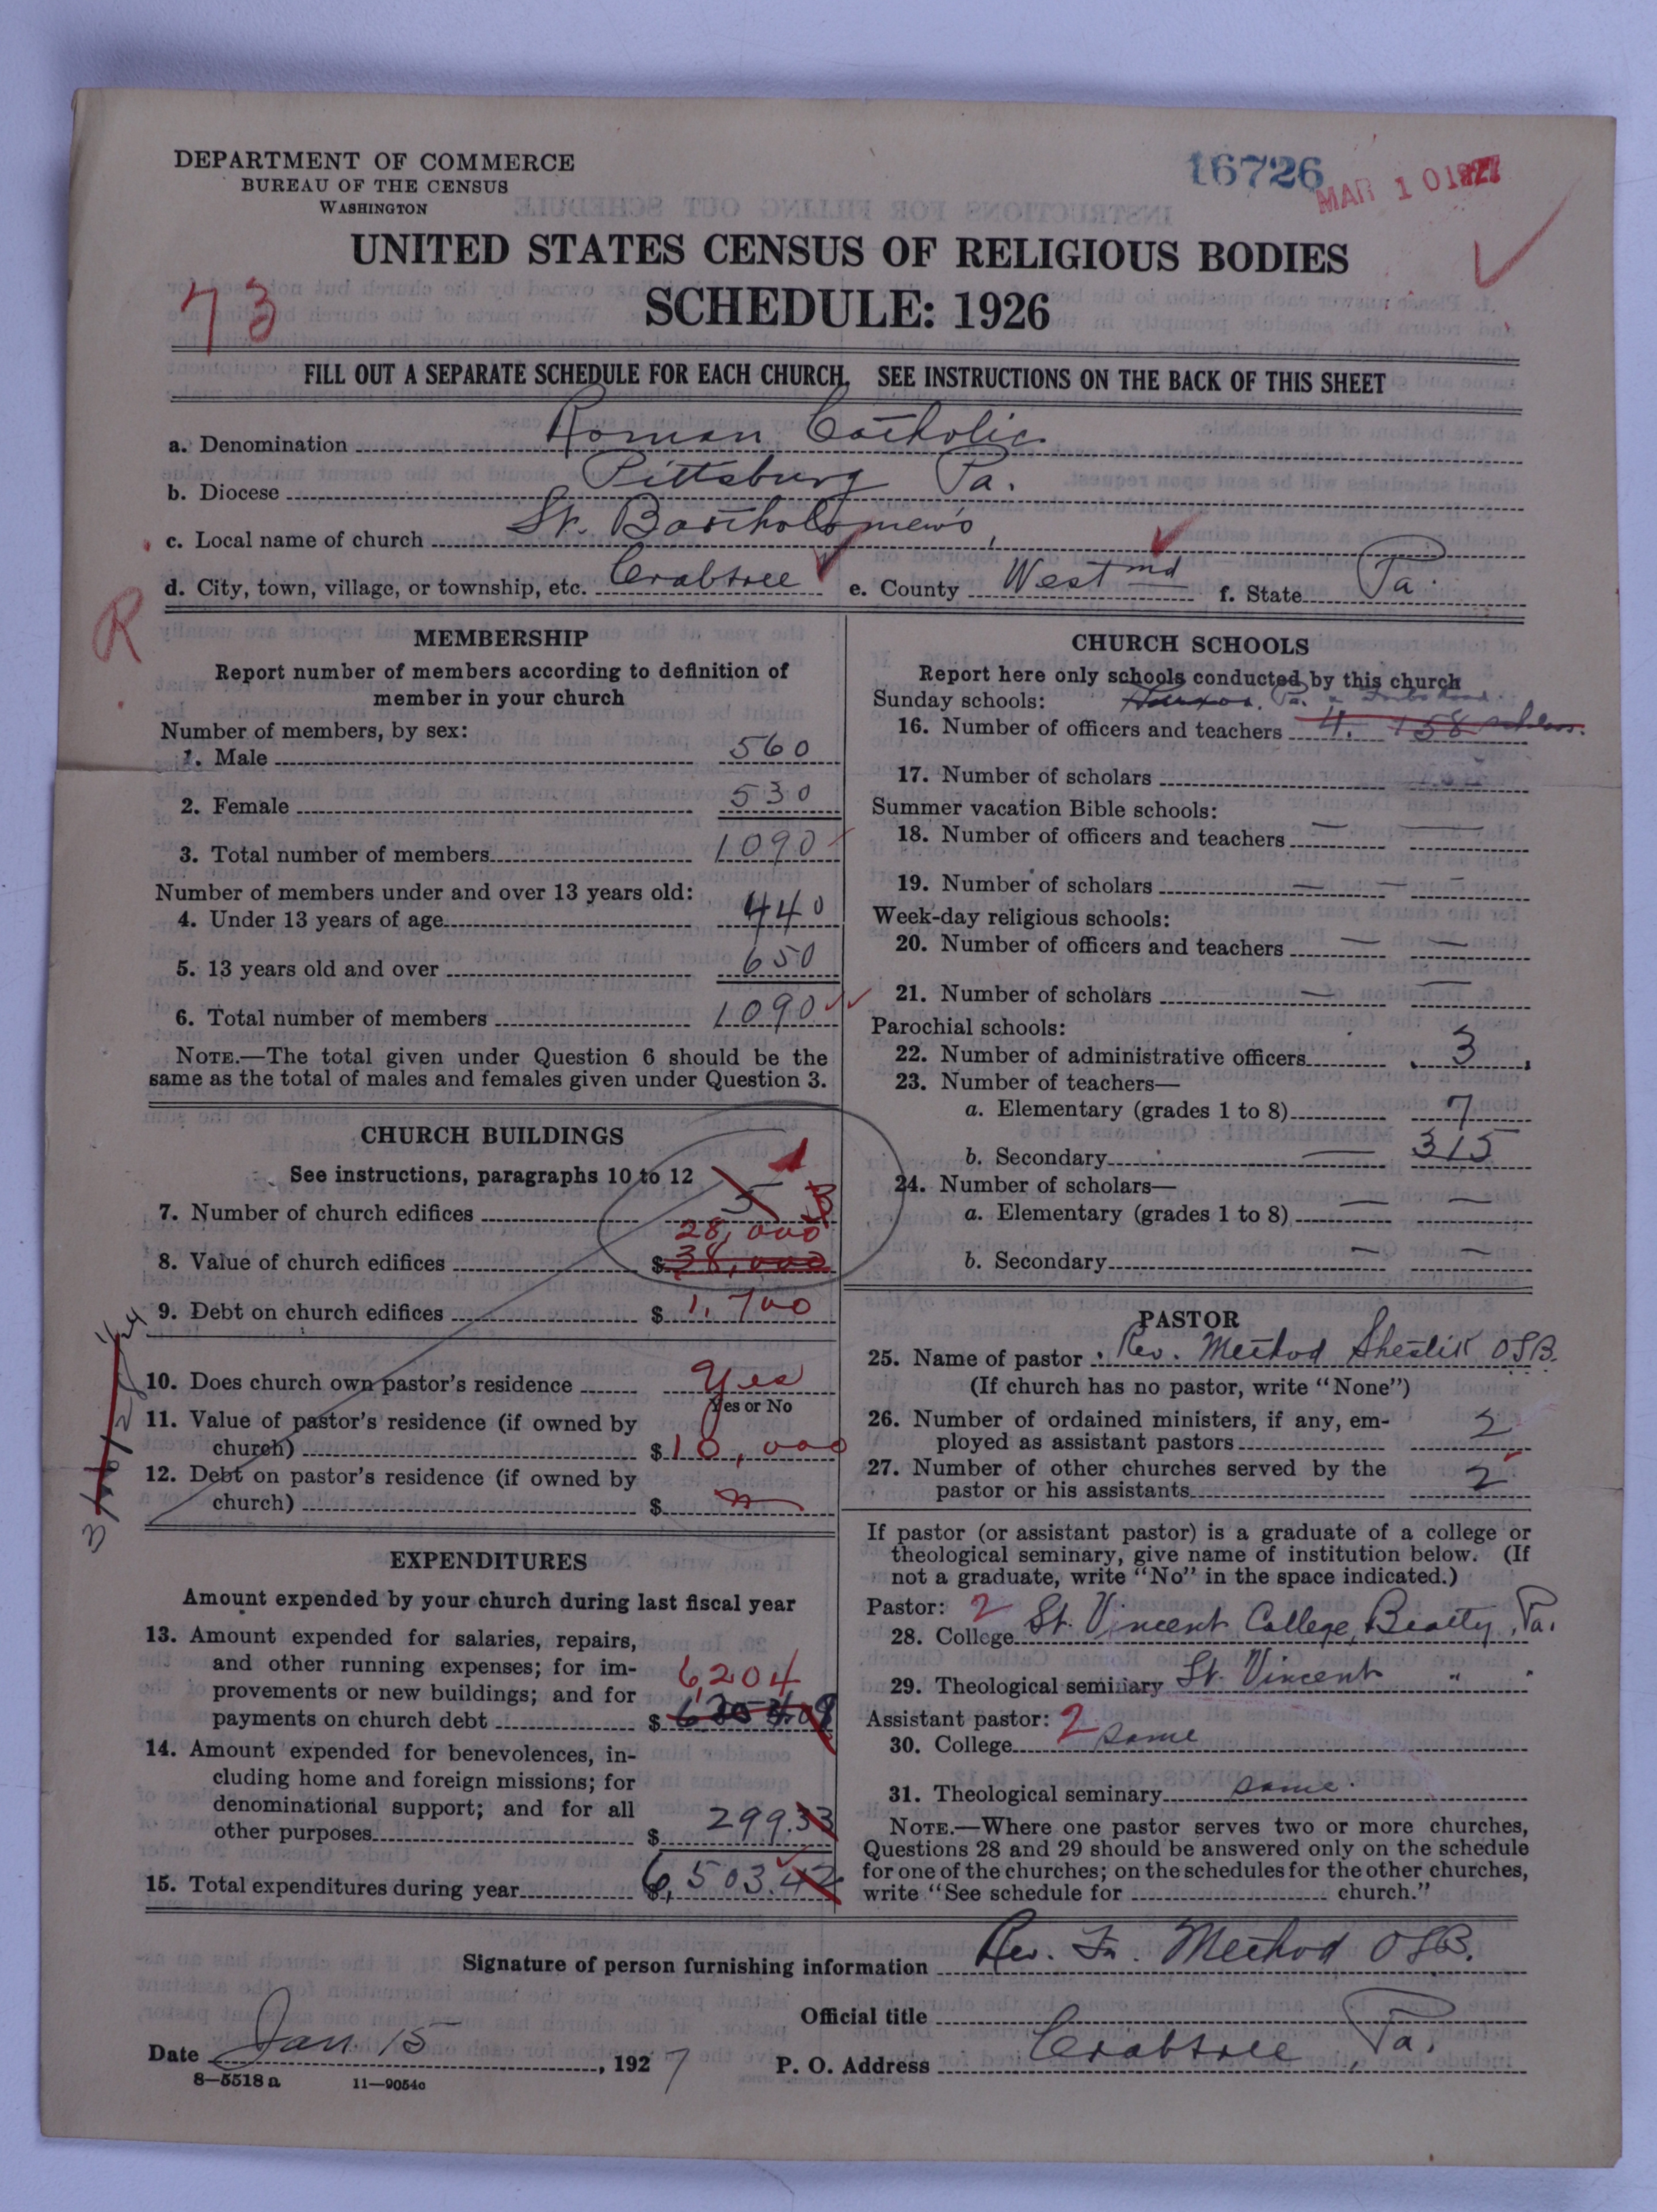 DEPARTMENT OF COMMERCE
BUREAU OF THE CENSUS
WASHINGTON
16726
MAR 10 1927
UNITED STATES CENSUS OF RELIGIOUS BODIES
SCHEDULE: 1926
73
FILL OUT A SEPARATE SCHEDULE FOR EACH CHURCH. SEE INSTRUCTIONS ON THE BACK OF THIS SHEET
a. Denomination Roman Catholic
b. Diocese Pittsburg Pa.
c. Local name of church St. Bartholomew's,
d. City, town, village, or township, etc. Crabtree e. County Westmd f. State Pa.
R
MEMBERSHIP
Report number of members according to definition of
member in your church
Number of members, by sex:
1. Male 560
2. Female 530
3. Total number of members 1090
Number of members under and over 13 years old:
4. Under 13 years of age 440
5. 13 years old and over 650
6. Total number of members 1090
NOTE.—The total given under Question 6 should be the
same as the total of males and females given under Question 3.
CHURCH BUILDINGS
See instructions, paragraphs 10 to 12
1
7. Number of church edifices 3
28,000
8. Value of church edifices $ 38,000
9. Debt on church edifices $ 1,700
10. Does church own pastor's residence Yes
Yes or No
11. Value of pastor's residence (if owned by
church) $ 10,000
12. Debt on pastor's residence (if owned by
church) $
EXPENDITURES
Amount expended by your church during last fiscal year
13. Amount expended for salaries, repairs,
and other running expenses; for im-
provements or new buildings; and for
6,204
payments on church debt $
14. Amount expended for benevolences, in-
cluding home and foreign missions; for
denominational support; and for all
other purposes $ 299.33
15. Total expenditures during year $ 6,503.42
CHURCH SCHOOLS
Report here only schools conducted by this church
Sunday schools: Pa.
16. Number of officers and teachers 4. 158
17. Number of scholars
Summer vacation Bible schools:
18. Number of officers and teachers — —
19. Number of scholars — — —
Week-day religious schools:
20. Number of officers and teachers — —
21. Number of scholars — —
Parochial schools:
22. Number of administrative officers 3
23. Number of teachers—
a. Elementary (grades 1 to 8) 7
b. Secondary — 315
24. Number of scholars—
a. Elementary (grades 1 to 8) — —
b. Secondary — —
PASTOR
25. Name of pastor Rev. Method Shestik OSB.
(If church has no pastor, write "None")
26. Number of ordained ministers, if any, em-
ployed as assistant pastors 2
27. Number of other churches served by the
pastor or his assistants 2
If pastor (or assistant pastor) is a graduate of a college or
theological seminary, give name of institution below. (If
not a graduate, write "No" in the space indicated.)
Pastor: 2
28. College St. Vincent College, Beatty, Pa.
29. Theological seminary St. Vincent " "
Assistant pastor: 2
30. College same
31. Theological seminary same.
NOTE.—Where one pastor serves two or more churches,
Questions 28 and 29 should be answered only on the schedule
for one of the churches; on the schedules for the other churches,
write "See schedule for church."
Signature of person furnishing information Rev. Fr. Method OSB.
Official title
Date Jan. 15, 1927 P. O. Address Crabtree, Pa.
8—5518 a 11—9054c